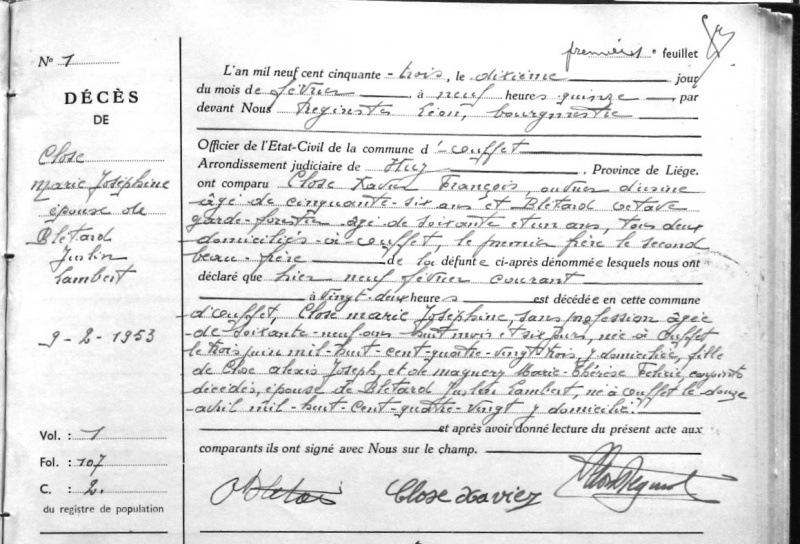 premier feuillet
N° 1
DÉCÈS
DE
Close
Marie Joséphine
épouse de
Blétard
Justin
Lambert
9-2-1953
Vol. : 1
Fol. : 107
C. : 2.
du registre de population
L'an mil neuf cent cinquante-trois, le dixième jour
du mois de février, à neuf heures quinze, par
devant Nous Léon, bourgmestre
Officier de l'Etat-Civil de la commune d'Ouffet
Arrondissement judiciaire de Huy, Province de Liége.
ont comparu Close Xavier François, ouvrier d'usine
âgé de cinquante-six ans et Blétard Octave
garde-forestier âgé de soixante et un ans, tous deux
domiciliés à Ouffet, le premier frère le second
beau-frère de la défunte ci-après dénommée lesquels nous ont
déclaré que hier neuf février courant
à vingt-deux heures est décédée en cette commune
d'Ouffet, Close Marie Joséphine, sans profession âgée
de soixante-neuf ans huit mois et six jours, née à Ouffet
le trois juin mil-huit-cent-quatre-vingt trois, y domiciliée, fille
de Close Alexis Joseph, et de Magnery Marie-Thérèse conjoints
décédés, épouse de Blétard Justin Lambert, né à Ouffet le douze
avril mil-huit-cent-quatre-vingt y domicilié.
et après avoir donné lecture du présent acte aux
comparants ils ont signé avec Nous sur le champ.
Close Xavier